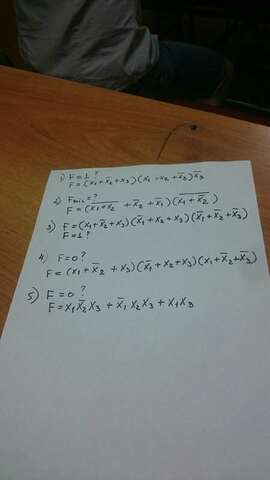 1) F=1 ?
F=(x1+x̅2+x3)(x1-x2+x̅3)x̅3
2) Fмин=?
F=(x̅1̅+̅x̅2̅ +x̅2+x̅1)(x̅1̅+̅x̅̅2̅)
3) F=(x1+x̅2+x3)(x̅1+x2+x3)(x̅1+x̅2+x̅3)
F=1?
4) F=0?
F=(x1+x̅2+x3)(x̅1+x2+x3)(x1+x̅2+x̅3)
5) F=0?
F=x1x̅2x3+x̅1x2x3+x1x3